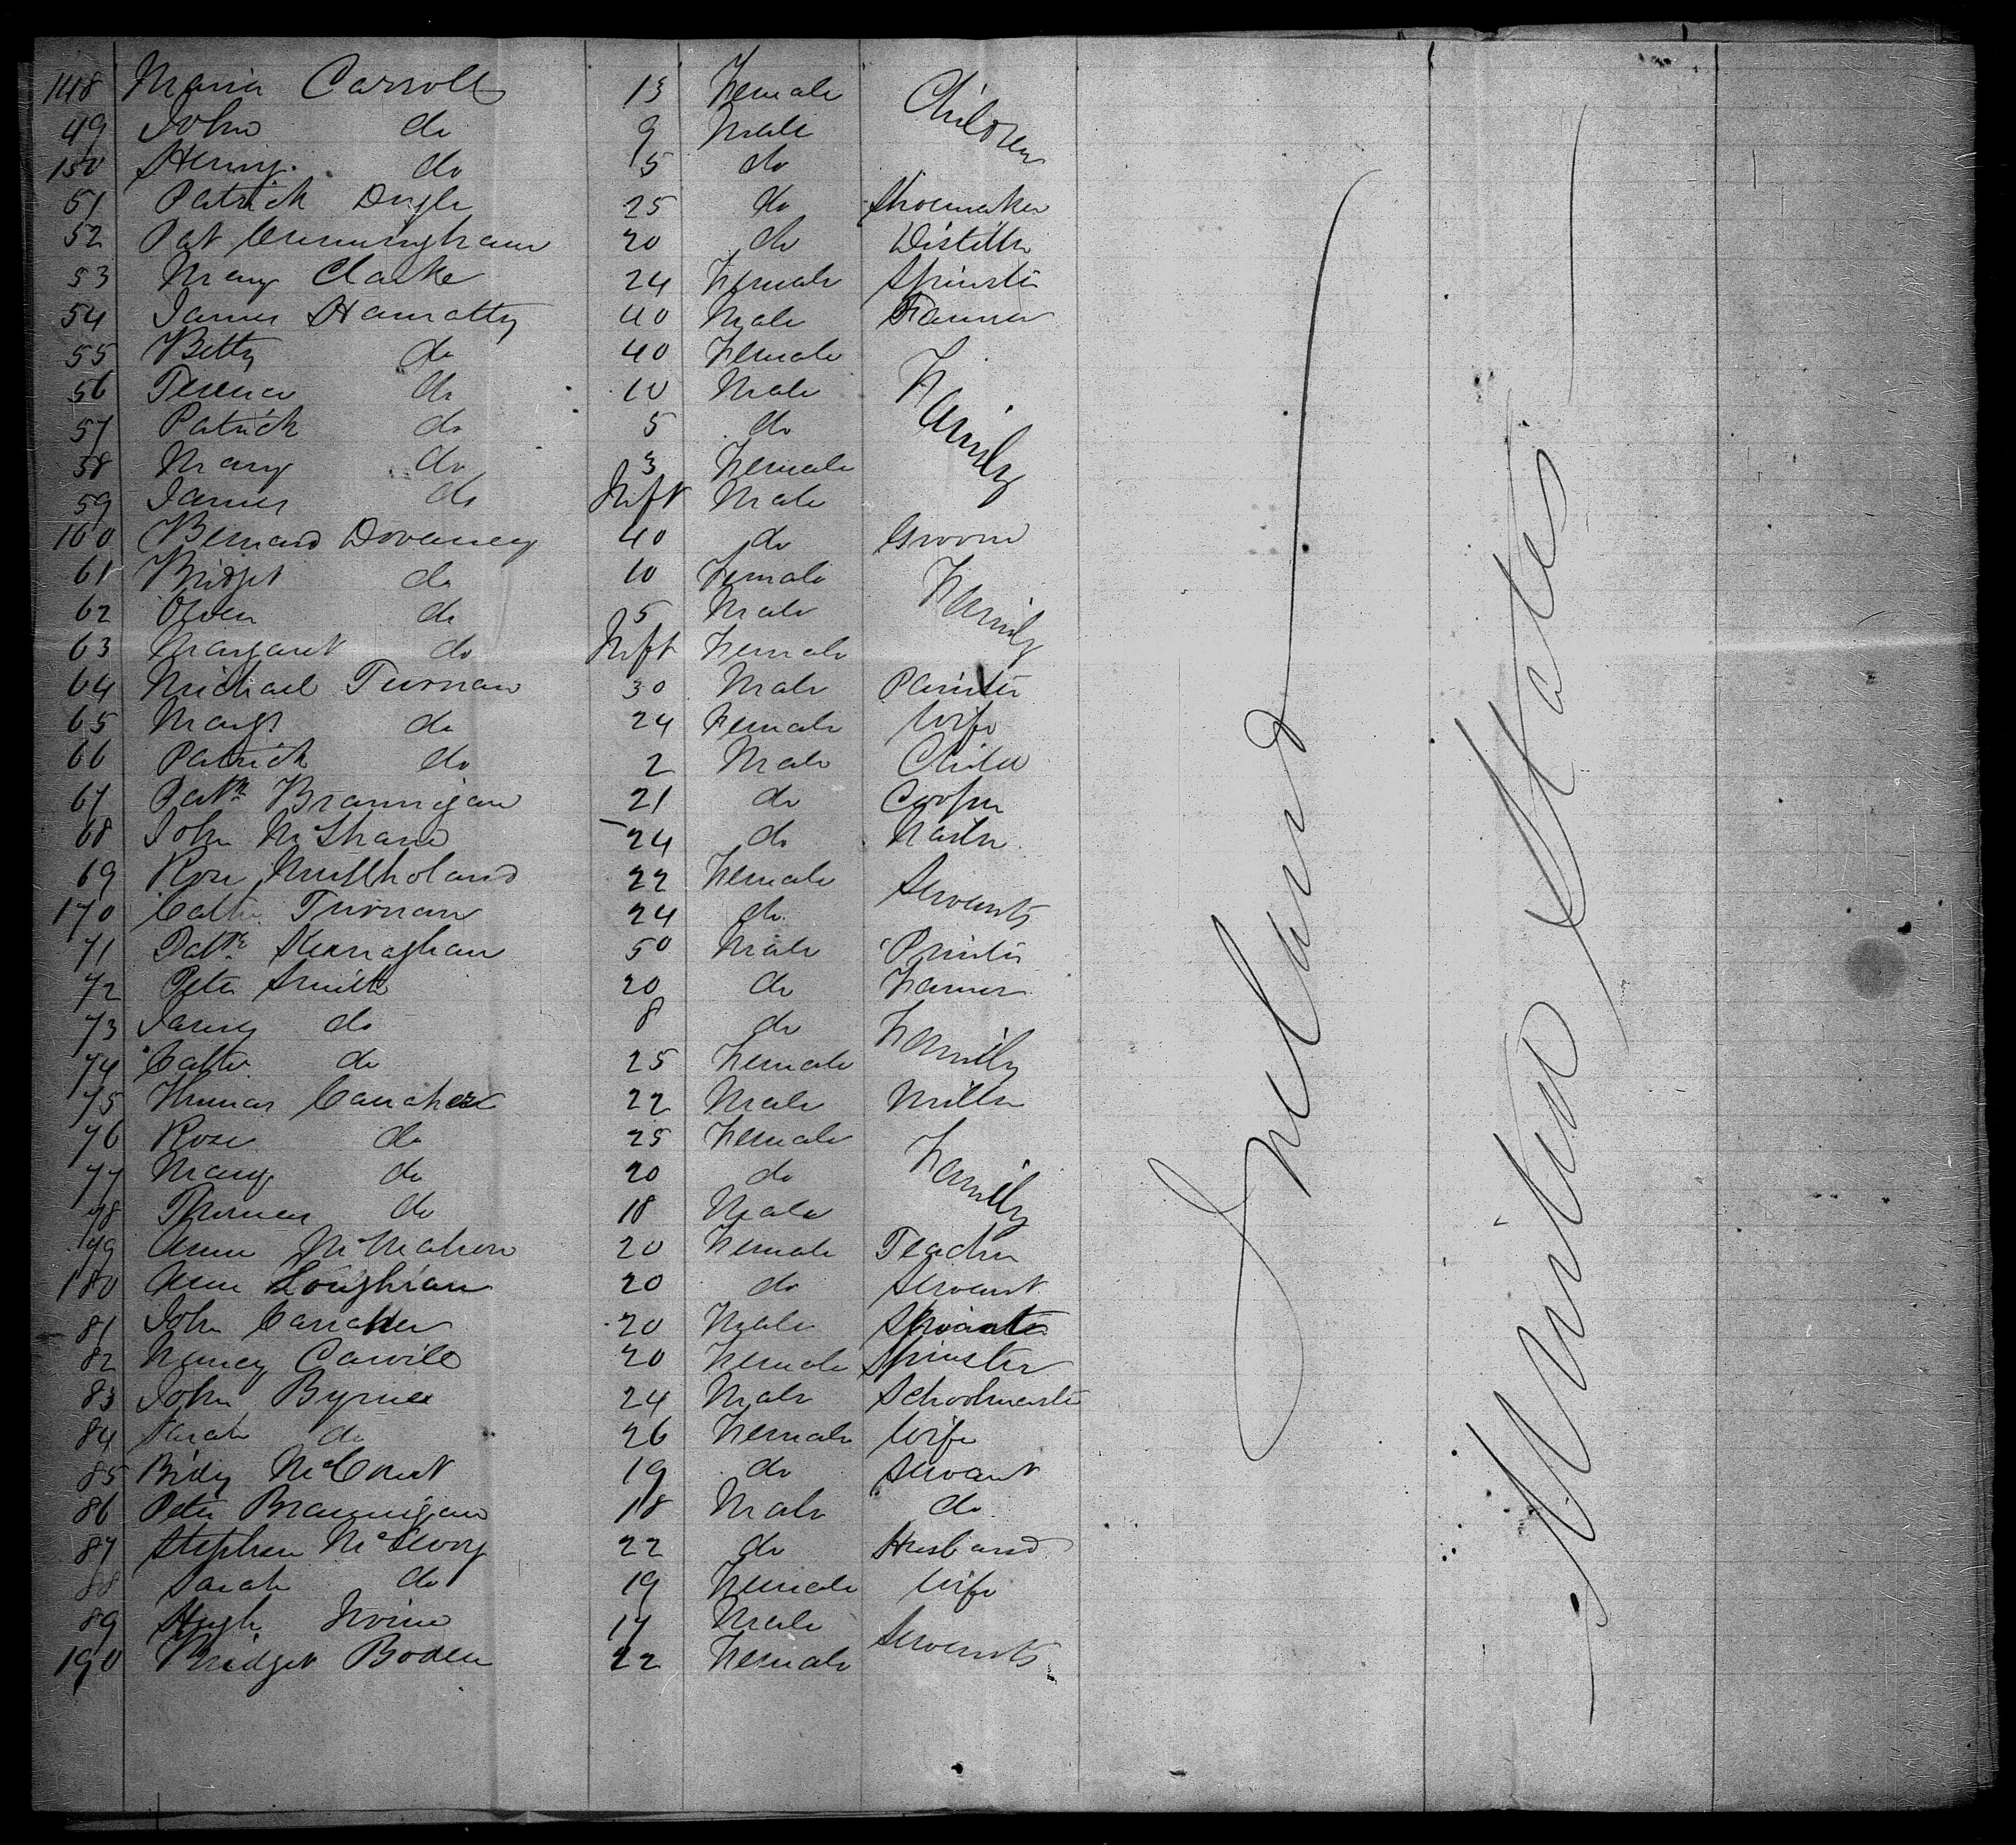 148 Maria Carroll 13 Female Children
49 John do 9 Male
150 Henry do 5 do
51 Patrick Doyle 25 do Shoemaker
52 Pat Cunningham 20 do Distiller
53 Mary Clarke 24 Female Spinster
54 James Hanratty 40 Male Farmer
55 Betty do 40 Female Family
56 Terence do 10 Male
57 Patrick do 5 do
58 Mary do 3 Female
59 James do Inft Male
160 Bernard Dovaney 40 do Groom
61 Bridget do 10 Female Family
62 Owen do 5 Male
63 Margaret do Inft Female
64 Michael Turnan 30 Male Painter
65 Margt do 24 Female Wife
66 Patrick do 2 Male Child
67 Patk Brannigan 21 do Cooper
68 John McShane 24 do Nailer
69 Rose Mullholand 22 Female Servants
170 Cathe Turnan 24 do
71 Patk Kernaghan 50 Male
72 Peter Smith 20 do Farmer
73 James do 8 do Family
74 Cathe do 25 Female
75 Thomas 22 Male Miller
76 Rose do 25 Female Family
77 Mary do 20 do
78 Thomas do 18 Male
79 Anne McMahon 20 Female Teacher
180 Ann Loughran 20 do Servant
81 John Carraher 20 Male
82 Nancy Carvill 20 Female Spinster
83 John Byrne 24 Male Schoolmaster
84 Sarah do 26 Female Wife
85 Bridy McCourt 19 do Servant
86 Peter Brannigan 18 Male do
87 Stephen McEvoy 22 do Husband
88 Sarah do 19 Female Wife
89 Hugh 17 Male Servants
190 Bridget Boden 22 Female
Ireland
United States